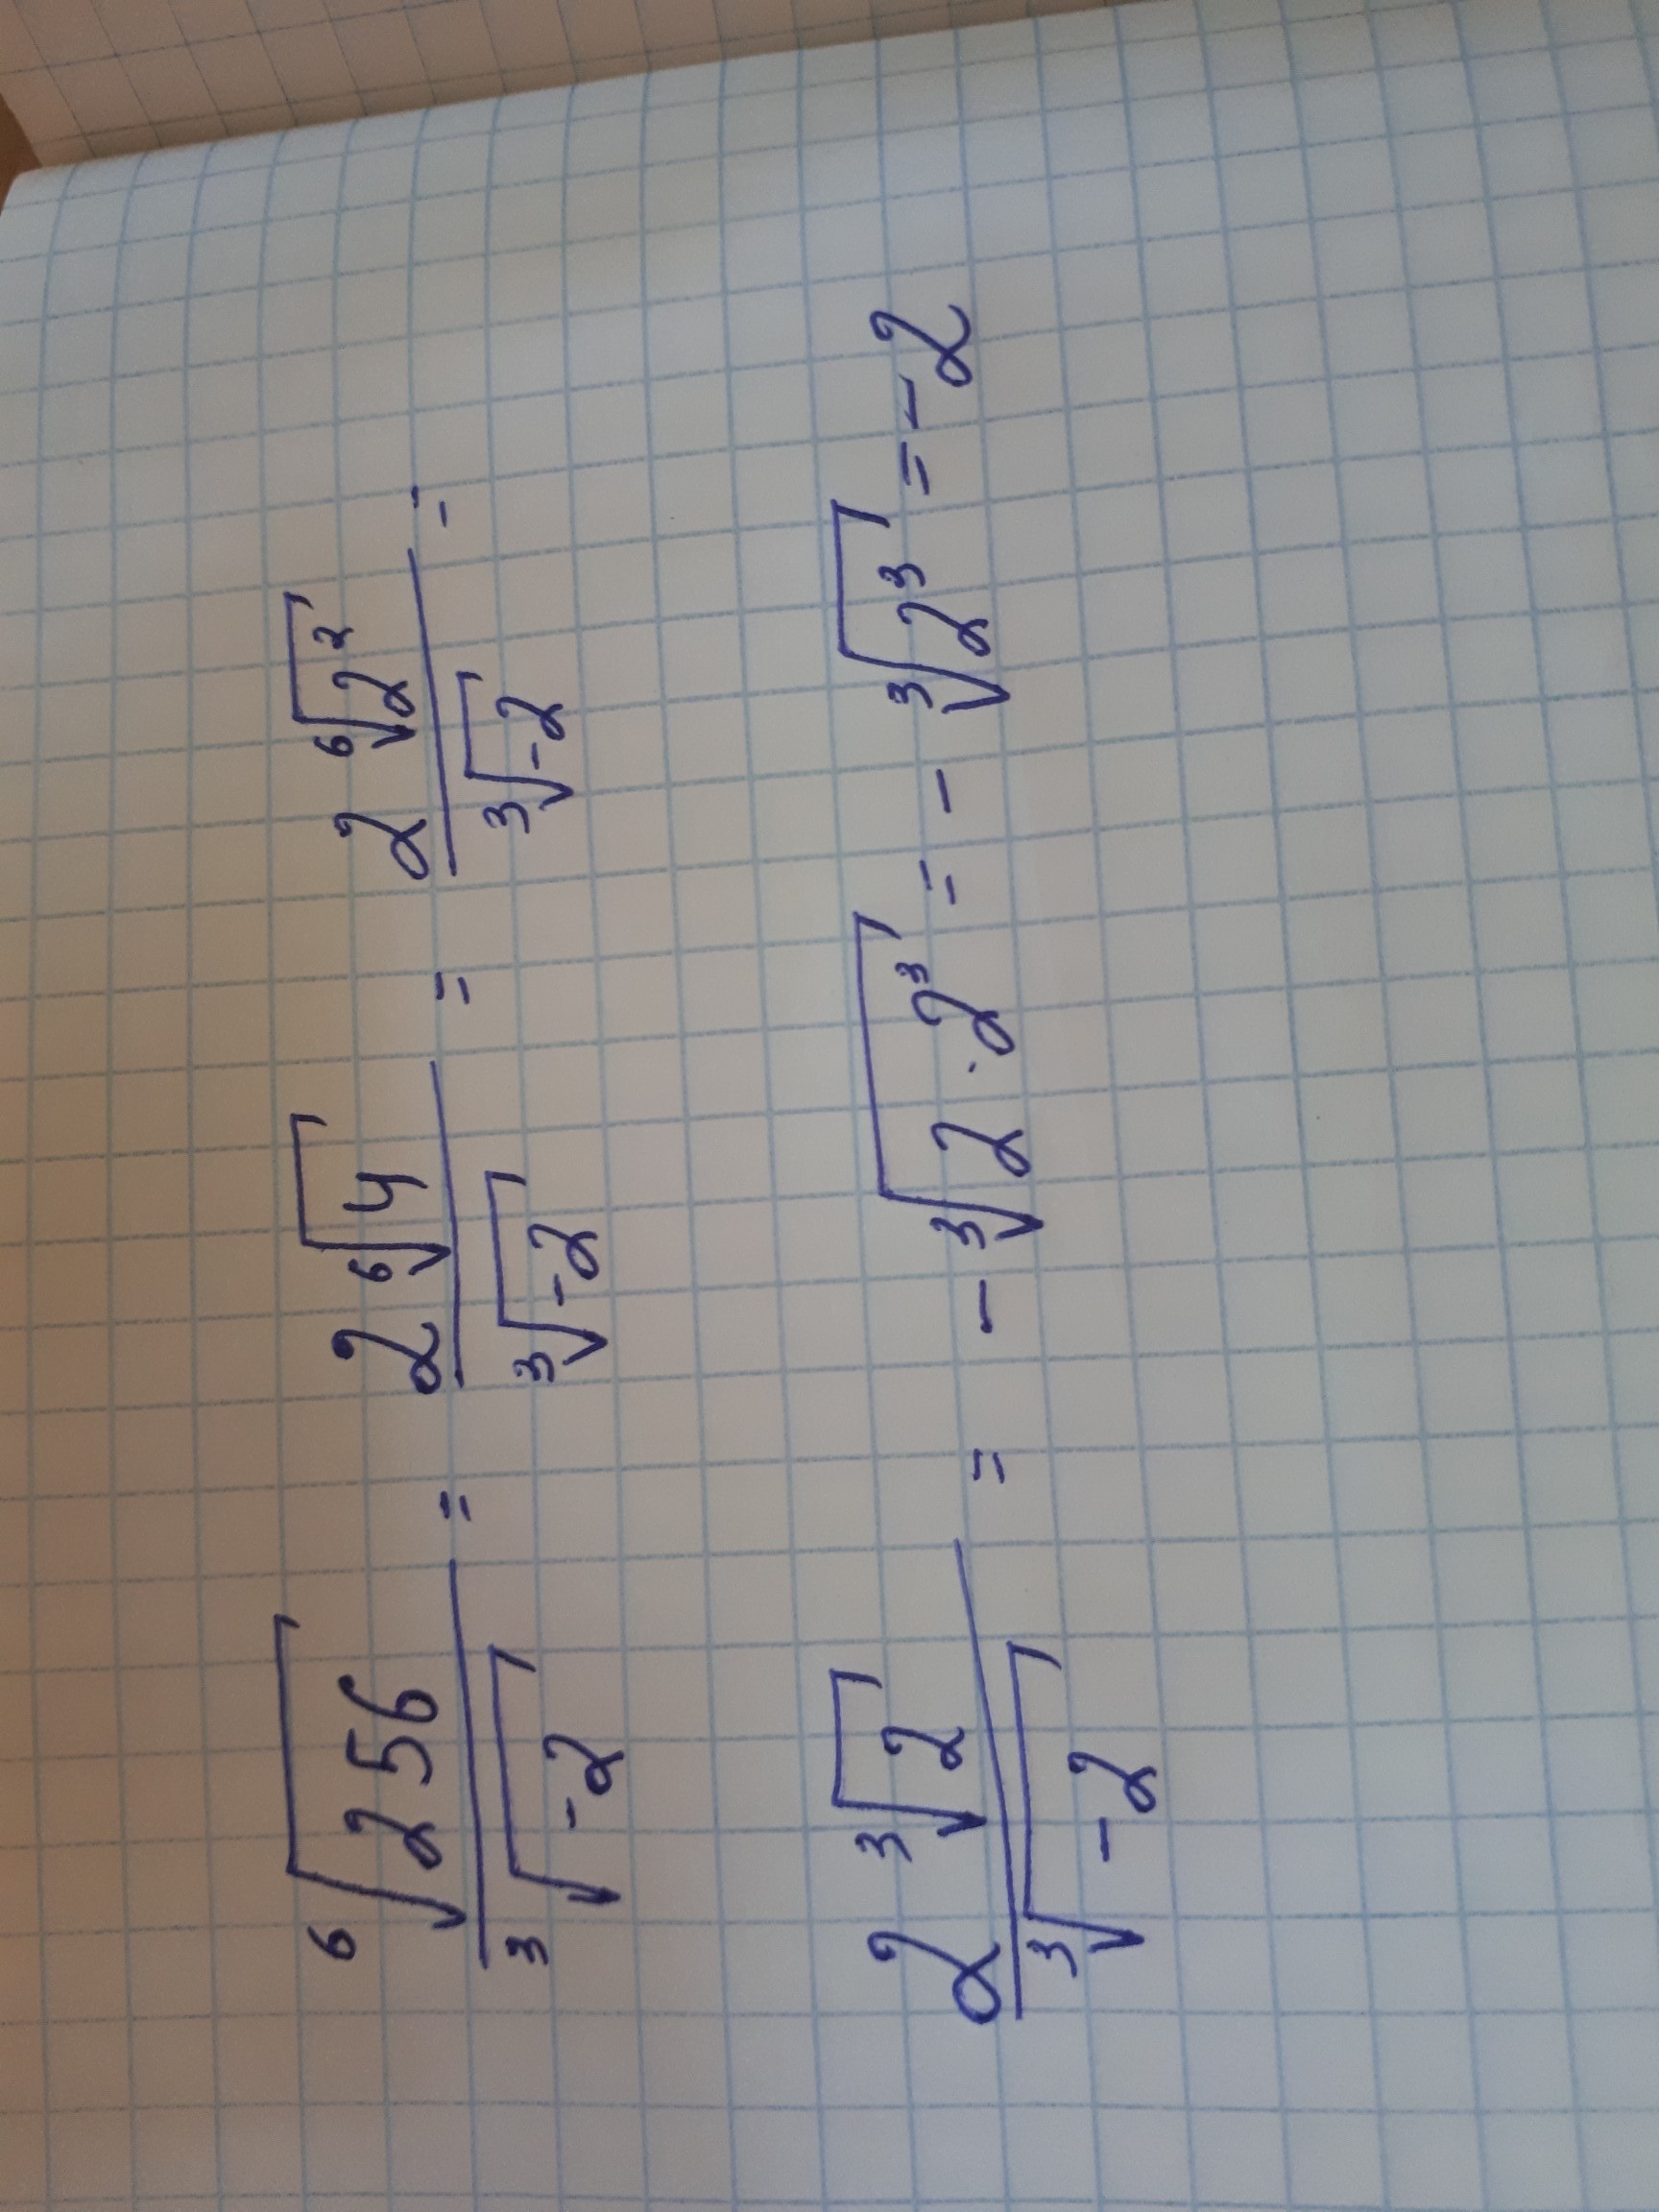 ⁶√256 / ³√-2 = 2 ⁶√4 / ³√-2 = 2 ⁶√2² / ³√-2 =
2 ³√2 / ³√-2 = - ³√2·2³ = - ³√2³ = -2